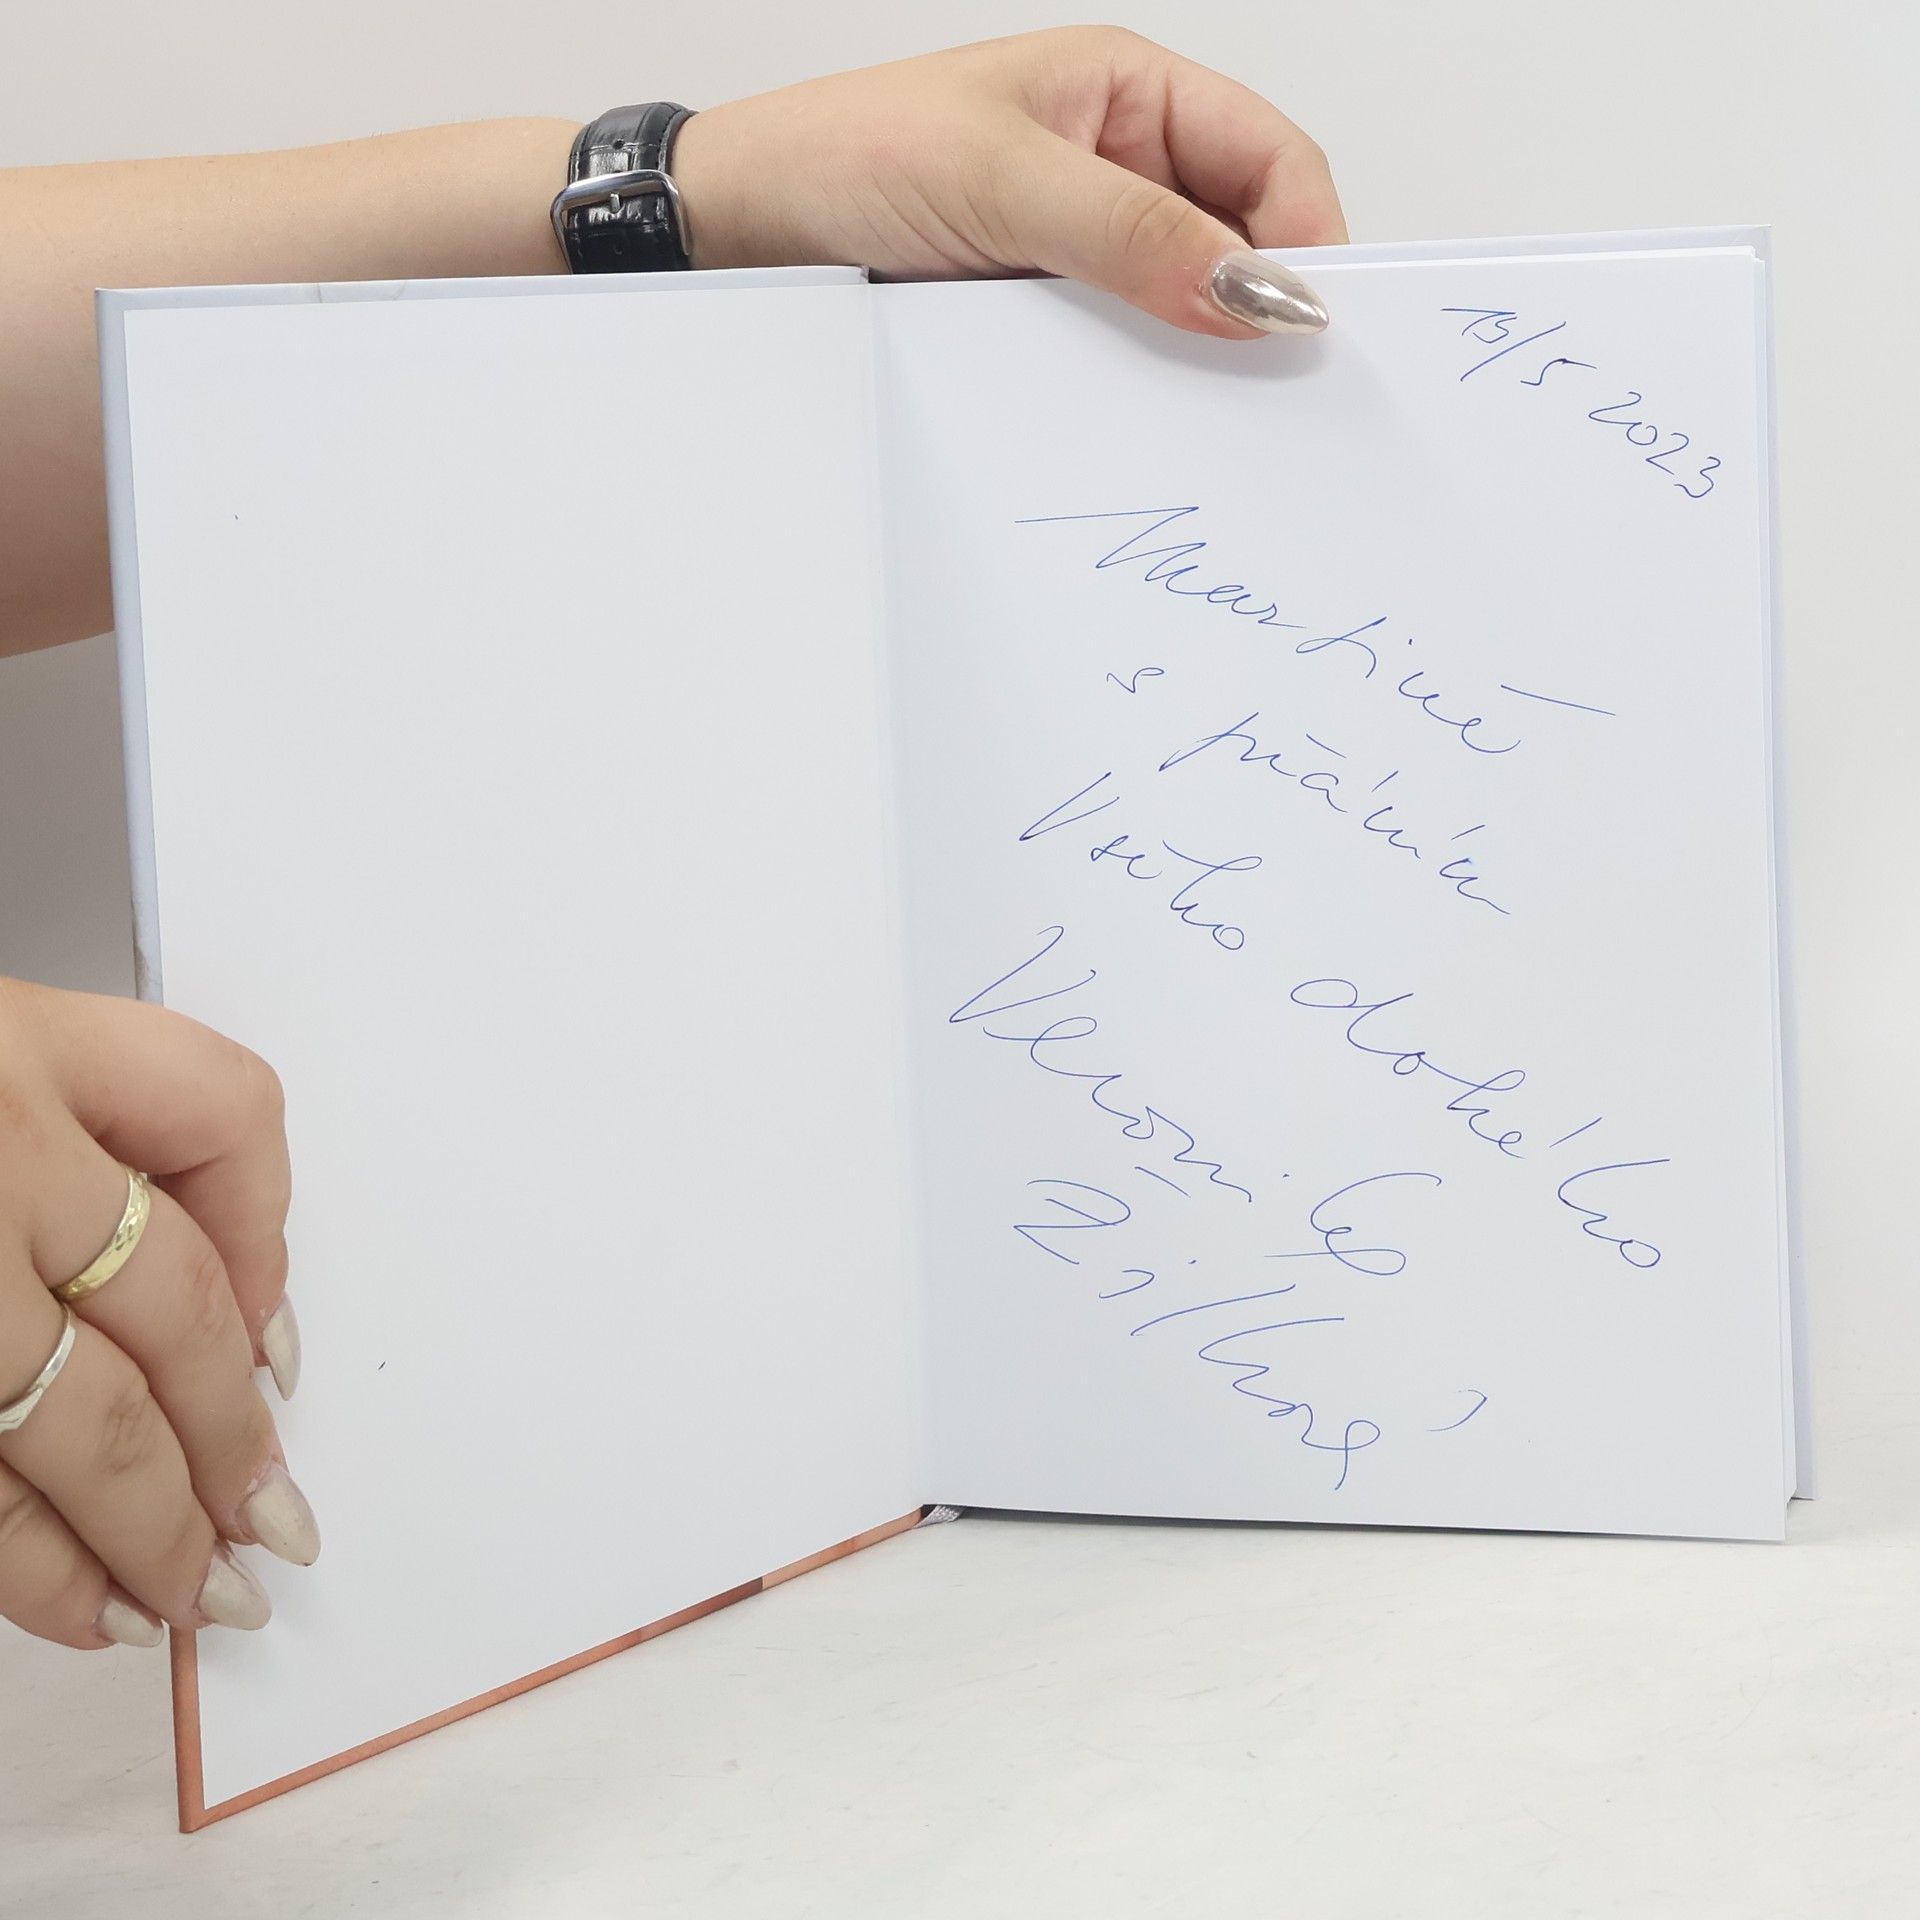 15/5 2023
Martině
s přáním
Všeho dobrého
Veronika
Žilková